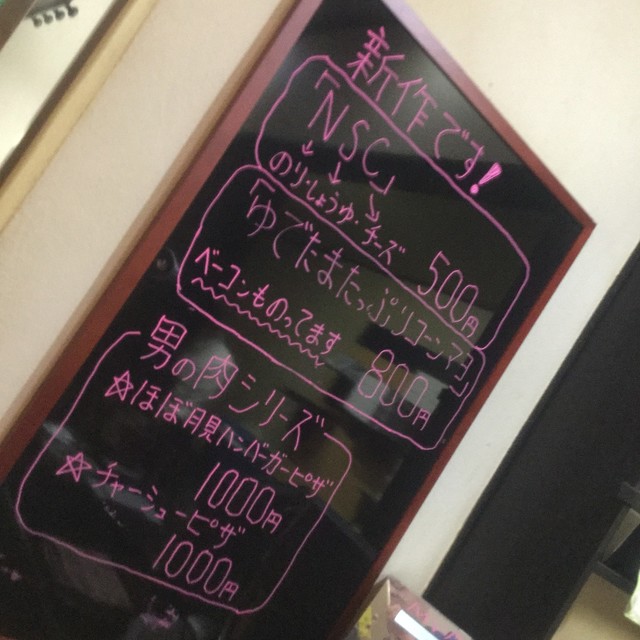 新作です!
「NSC」
のり・しょうゆ・チーズ
500円
「ゆでたまたっぷりコーンマヨ」
ベーコンものってます
800円
男の肉シリーズ
☆ほぼ月見ハンバーガーピザ
1000円
☆チャーシューピザ
1000円